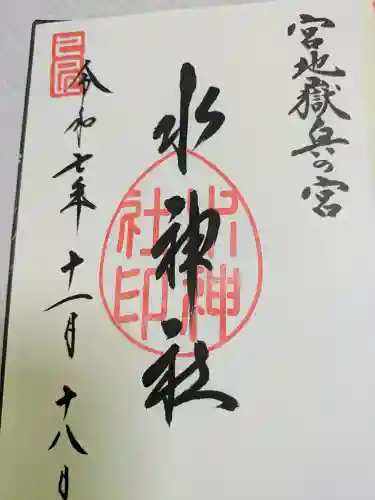 宮地嶽奥の宮
水神社
水神社印
乙巳
令和七年 十一月 十八日